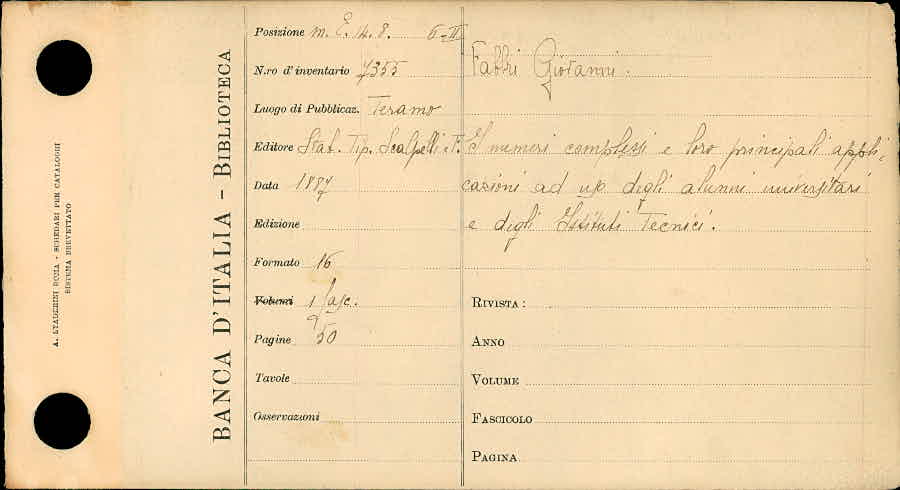 A. STADERINI ROMA - SCHEDARI PER CATALOGHI
SISTEMA BREVETTATO
BANCA D'ITALIA - BIBLIOTECA
Posizione m. E. 14. 8. 6-II
N.ro d'inventario 7355
Luogo di Pubblicaz. Teramo
Editore Stab. Tip. Scalpelli e F.
Data 1887
Edizione
Formato 16
Volumi 1 fasc.
Pagine 50
Tavole
Osservazioni
Fabbri Giovanni.
I numeri complessi e loro principali appli-
cazioni ad uso degli alunni universitari
e degli Istituti Tecnici.
RIVISTA:
ANNO
VOLUME
FASCICOLO
PAGINA